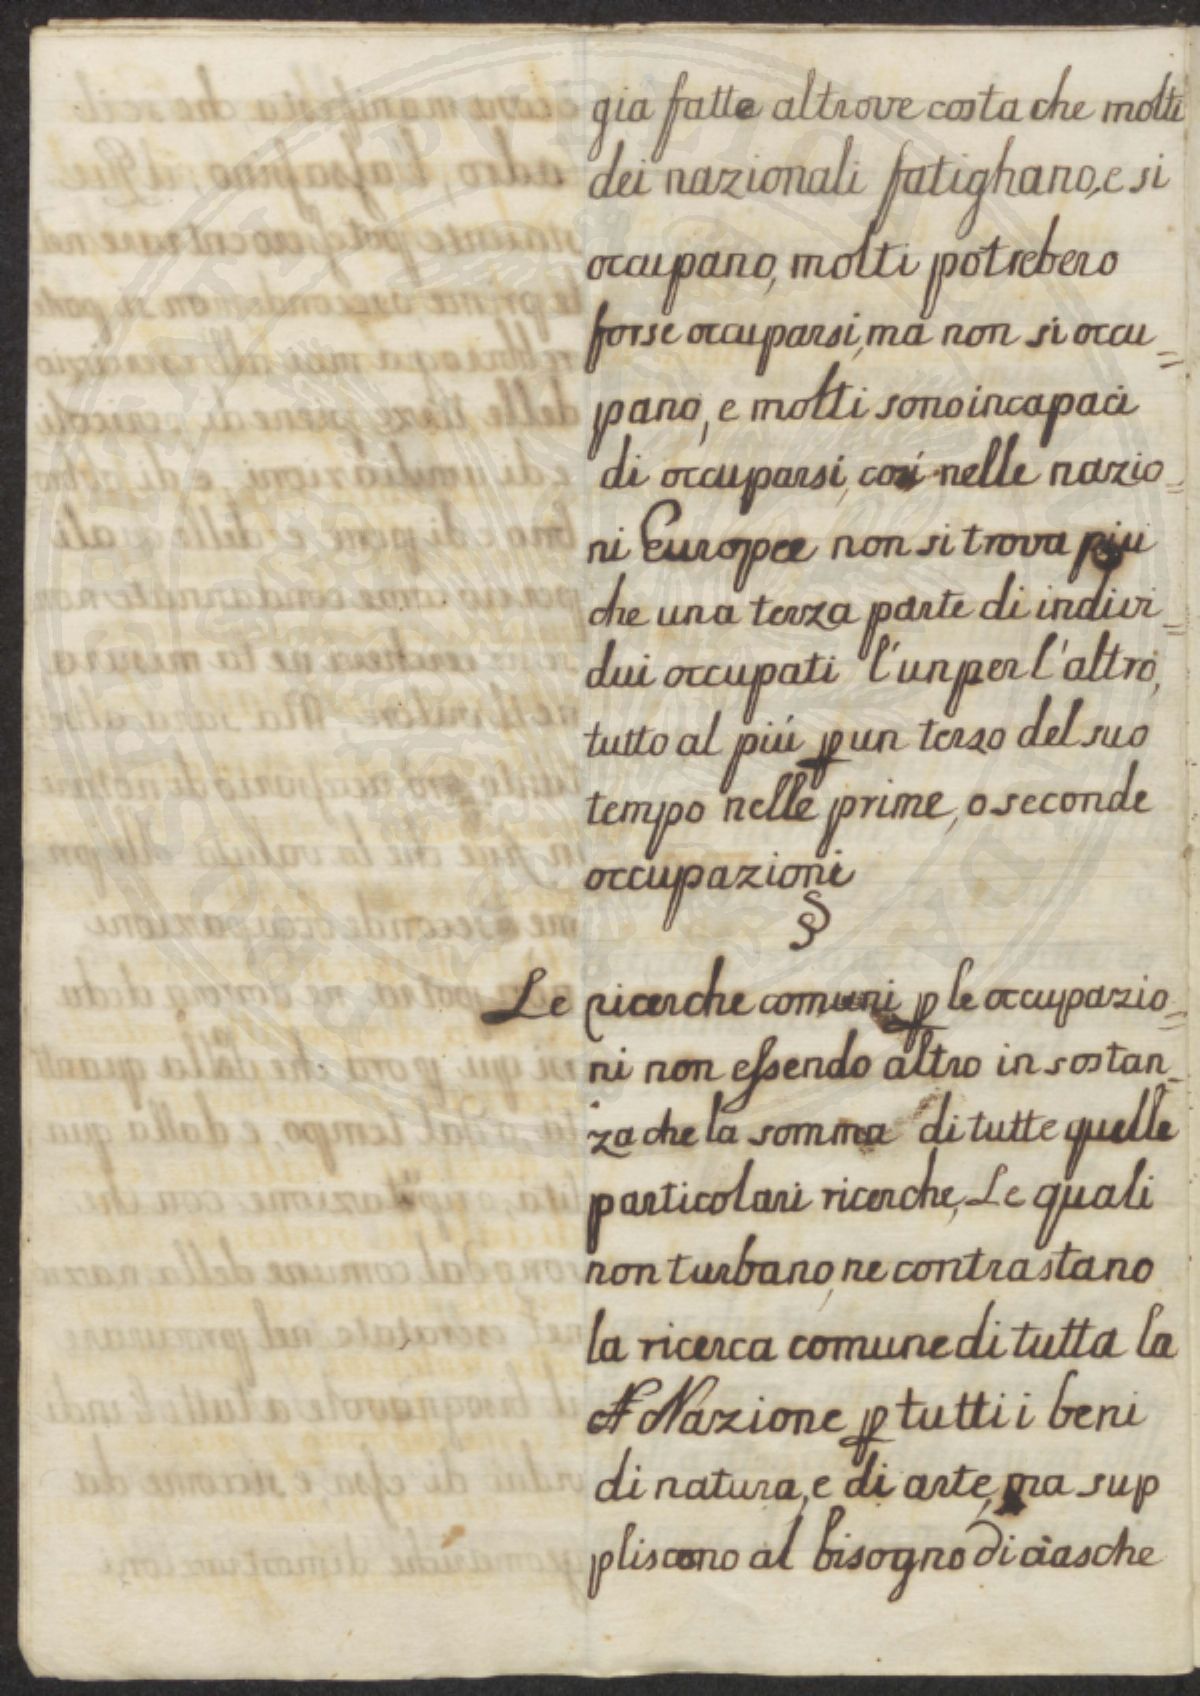 gia fatte altrove costa che molti
dei nazionali fatighano, e si
occupano, molti potrebero
forse occuparsi, ma non si occu=
pano, e molti sono incapaci
di occuparsi, cosi nelle nazio=
ni Europee non si trova piu
che una terza parte di indivi=
dui occupati l'un per l'altro,
tutto al piú ꝑ un terzo del suo
tempo nelle prime, o seconde
occupazioni
§
Le ricerche comuni ꝑ le occupazio=
ni non eſsendo altro in sostan=
za che la somma di tutte quelle
particolari ricerche, Le quali
non turbano, ne contrastano
la ricerca comune di tutta la
Nazione ꝑ tutti i beni
di natura, e di arte, ma sup
pliscono al bisogno di ciasche